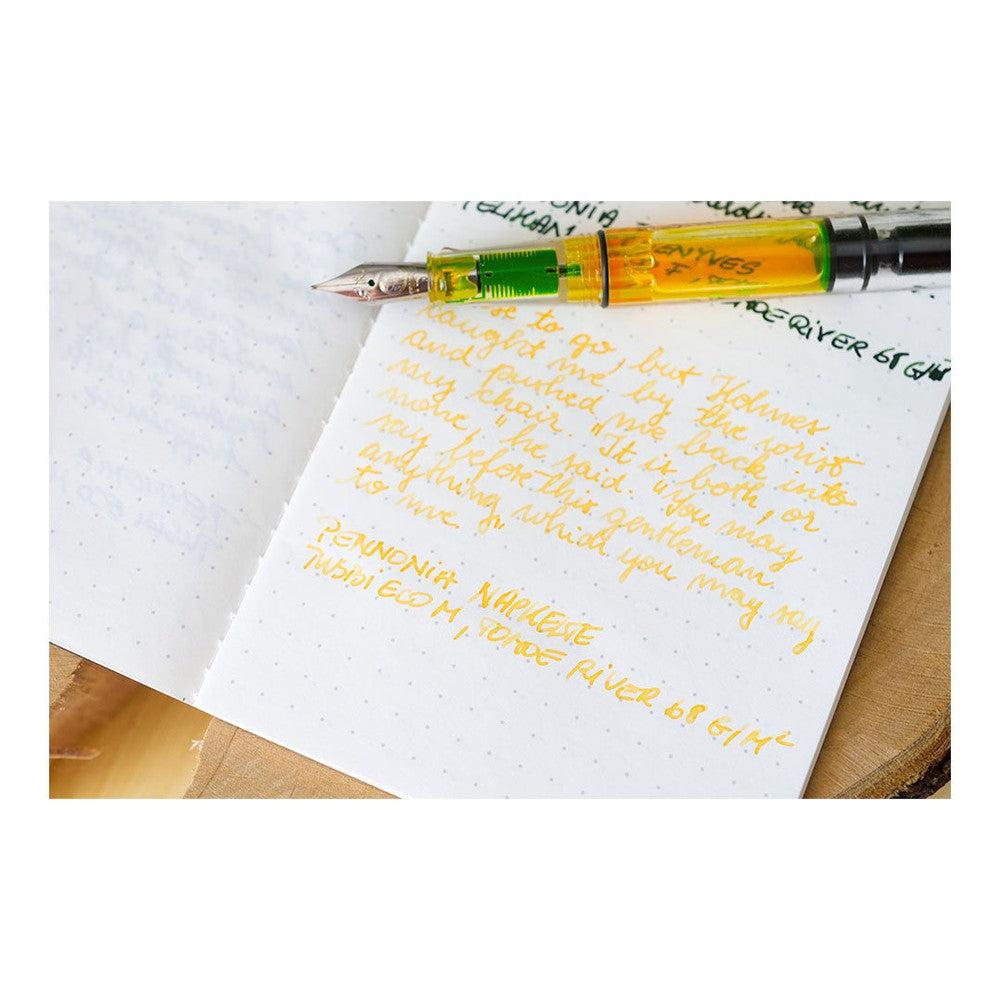 ONIA
PELIKAN
ENYVES
F,
RIVER 68 G/M²
se to go, but Holmes
caught me by the wrist
and pushed me back into
my chair. "It is both, or
none," he said. "You may
say before this gentleman
anything which you may say
to me."
PENNONIA NAPKELTE
TWSBI ECO M, TOMOE RIVER 68 G/M²